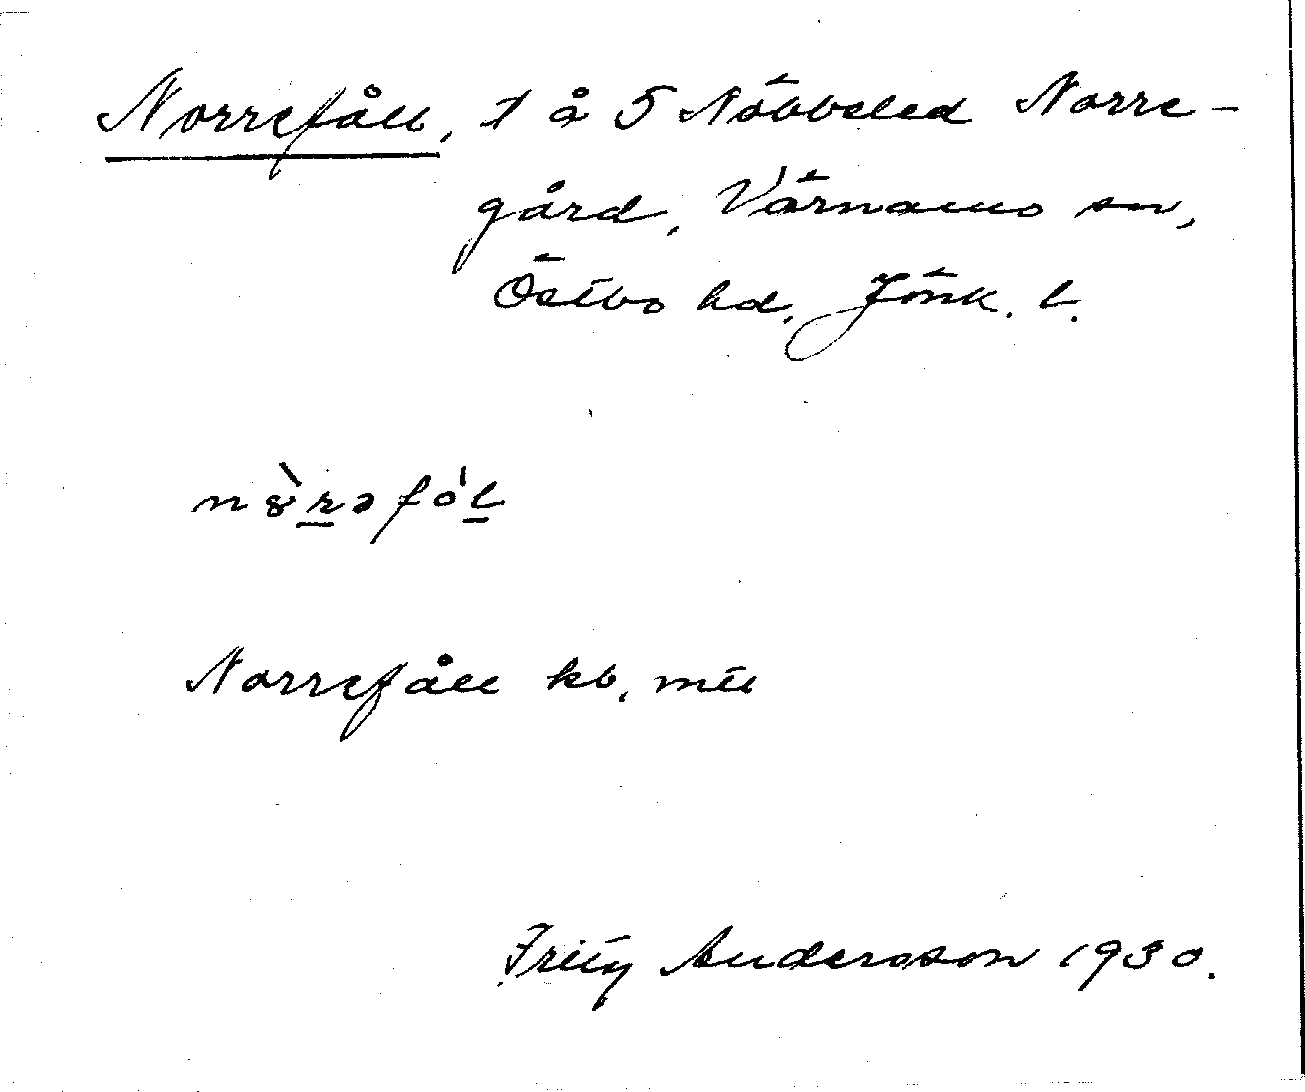 Norrefåll, 1 å 5 Nöbbeled Norre-
gård, Värnamo sn,
Östbo hd, Jönk. l.
Norrefåll kb, mtl
Fritz Andersson 1930.